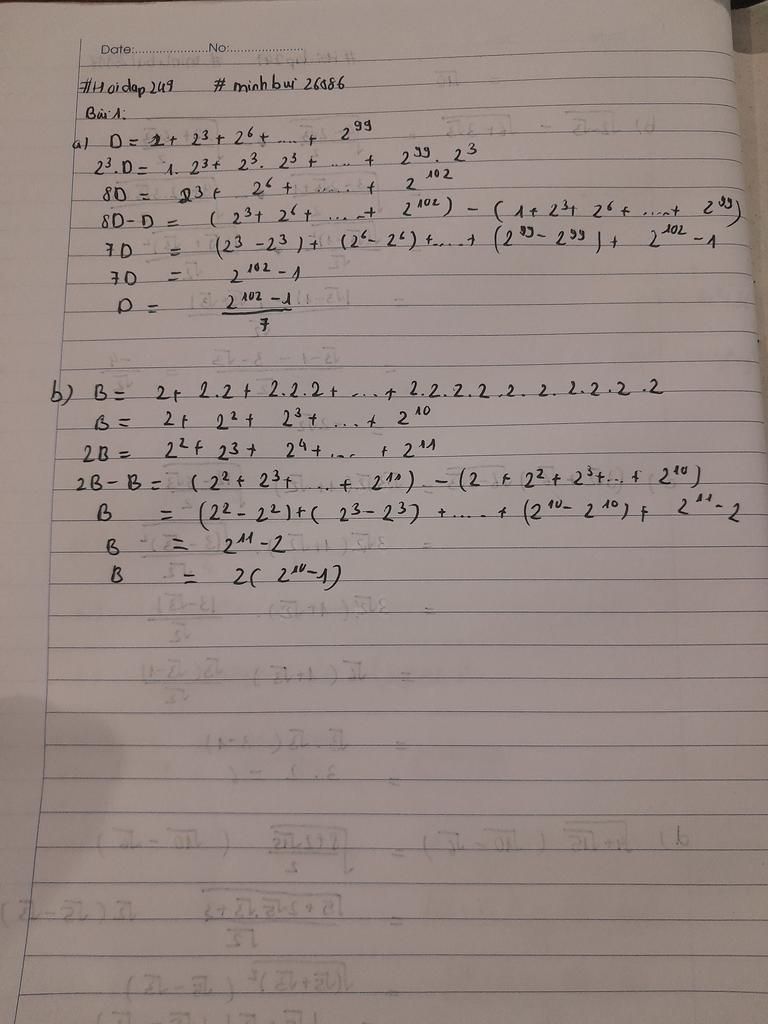 Date:....................No:.....................
#Hoidap249 #minhbui26086
Bài 1:
a) D = 1 + 2³ + 2⁶ + .... + 2⁹⁹
2³.D = 1. 2³ + 2³. 2³ + .... + 2⁹⁹. 2³
8D = 2³ + 2⁶ + ...... + 2¹⁰²
8D - D = ( 2³ + 2⁶ + .... + 2¹⁰² ) - ( 1 + 2³ + 2⁶ + ..... + 2⁹⁹ )
7D = (2³ - 2³ ) + (2⁶ - 2⁶ ) + .... + (2⁹⁹ - 2⁹⁹ ) + 2¹⁰² - 1
7D = 2¹⁰² - 1
D = 2¹⁰² - 1
7
b) B = 2 + 2.2 + 2.2.2 + ... + 2.2.2.2.2.2.2.2.2.2
B = 2 + 2² + 2³ + ... + 2¹⁰
2B = 2² + 2³ + 2⁴ + .... + 2¹¹
2B - B = ( 2² + 2³ + ... + 2¹¹ ) - (2 + 2² + 2³ + ... + 2¹⁰ )
B = (2² - 2² ) + ( 2³ - 2³ ) + .... + (2¹⁰ - 2¹⁰ ) + 2¹¹ - 2
B = 2¹¹ - 2
B = 2( 2¹⁰ - 1)